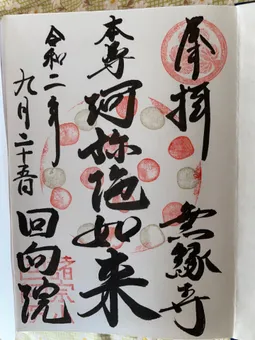 奉拝
無縁寺
本尊
阿弥陀如来
令和二年
九月二十五日
回向院